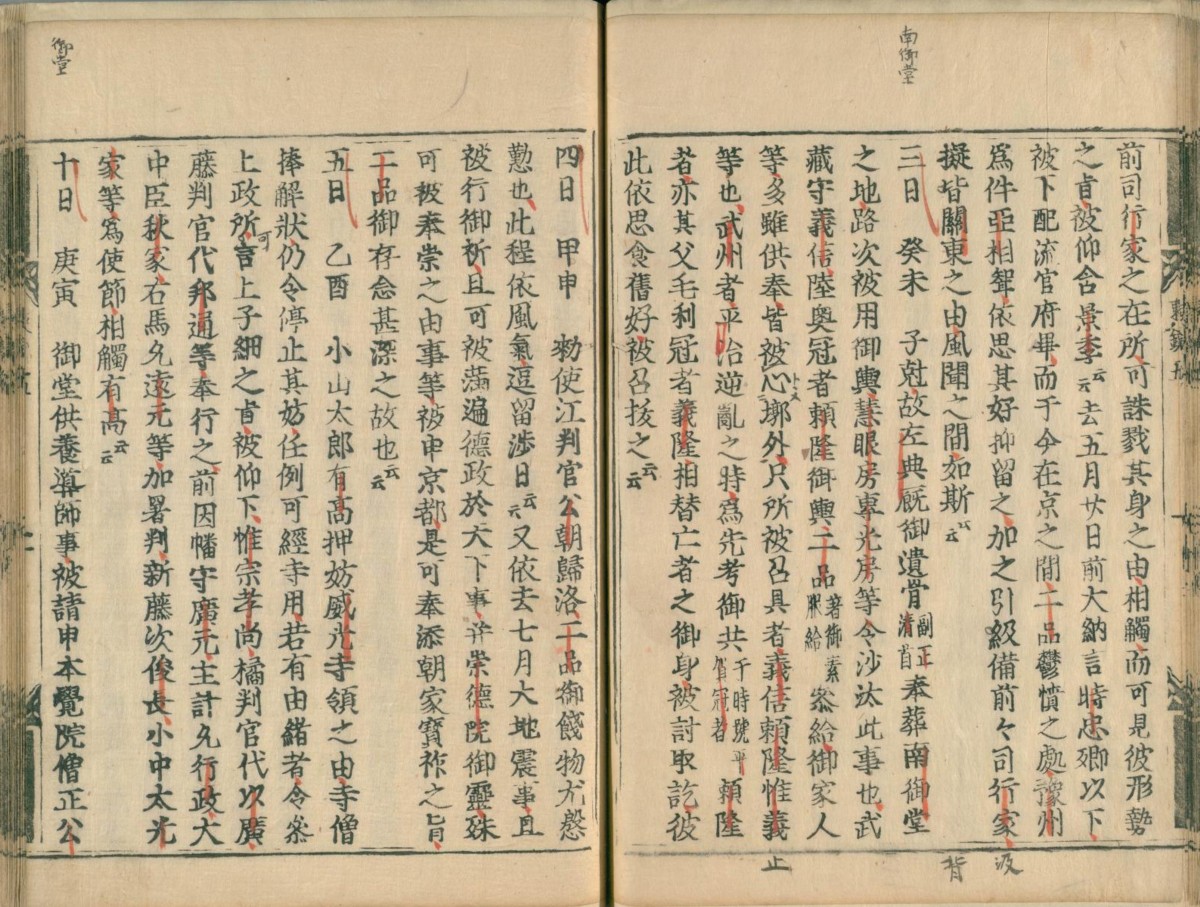 南御堂
前司行家之在所可誅戮其身之由相觸而可見彼形勢
之旨被仰含景季云云去五月廿日前大納言時忠卿以下
被下配流官府畢而于今在京之間二品欝憤之處豫州
爲件亞相聟依思其好抑留之加之引級備前々司行家
擬皆關東之由風聞之間如斯云云
三日　癸未　子尅故左典厩御遺骨副正清首奉葬南御堂
之地路次被用御輿惠眼房專光房等令沙汰此事也武
藏守義信陸奥冠者頼隆御輿二品著御素服給參給御家人
等多雖供奉皆被心墎外只所被召具者義信頼隆惟義
等也武州者平治逆亂之時爲先考御共于時號平賀冠者頼隆
者亦其父毛利冠者義隆相替亡者之御身被討取訖彼
此依思食舊好被召拔之云云
汲
背
止
御堂
四日　甲申　勅使江判官公朝歸洛二品御餞物尤慇
懃也此程依風氣逗留渉日云云又依去七月大地震事且
被行御祈且可被滿遍德政於天下事并崇德院御靈殊
可被奉崇之由事等被申京都是可奉添朝家寶祚之旨
二品御存念甚深之故也云云
五日　乙酉　小山太郎有高押妨威光寺領之由寺僧
捧解状仍令停止其妨任例可經寺用若有由緒者令參
上政所言上子細之旨被仰下惟宗孝尚橘判官代以廣
藤判官代邦通等奉行之前因幡守廣元主計允行政大
中臣秋家右馬允遠元等加署判新藤次俊長小中太光
家等爲使節相觸有高云云
十日　庚寅　御堂供養導師事被請申本覺院僧正公